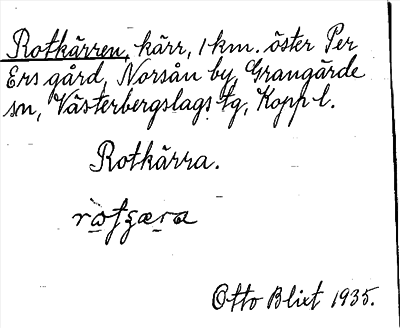 Rotkärren, kärr, 1 km. öster Per
Ers gård, Norsån by, Grangärde
sn, Västerbergslags tg, Kopp l.
Rotkärra.
Otto Blixt 1935.